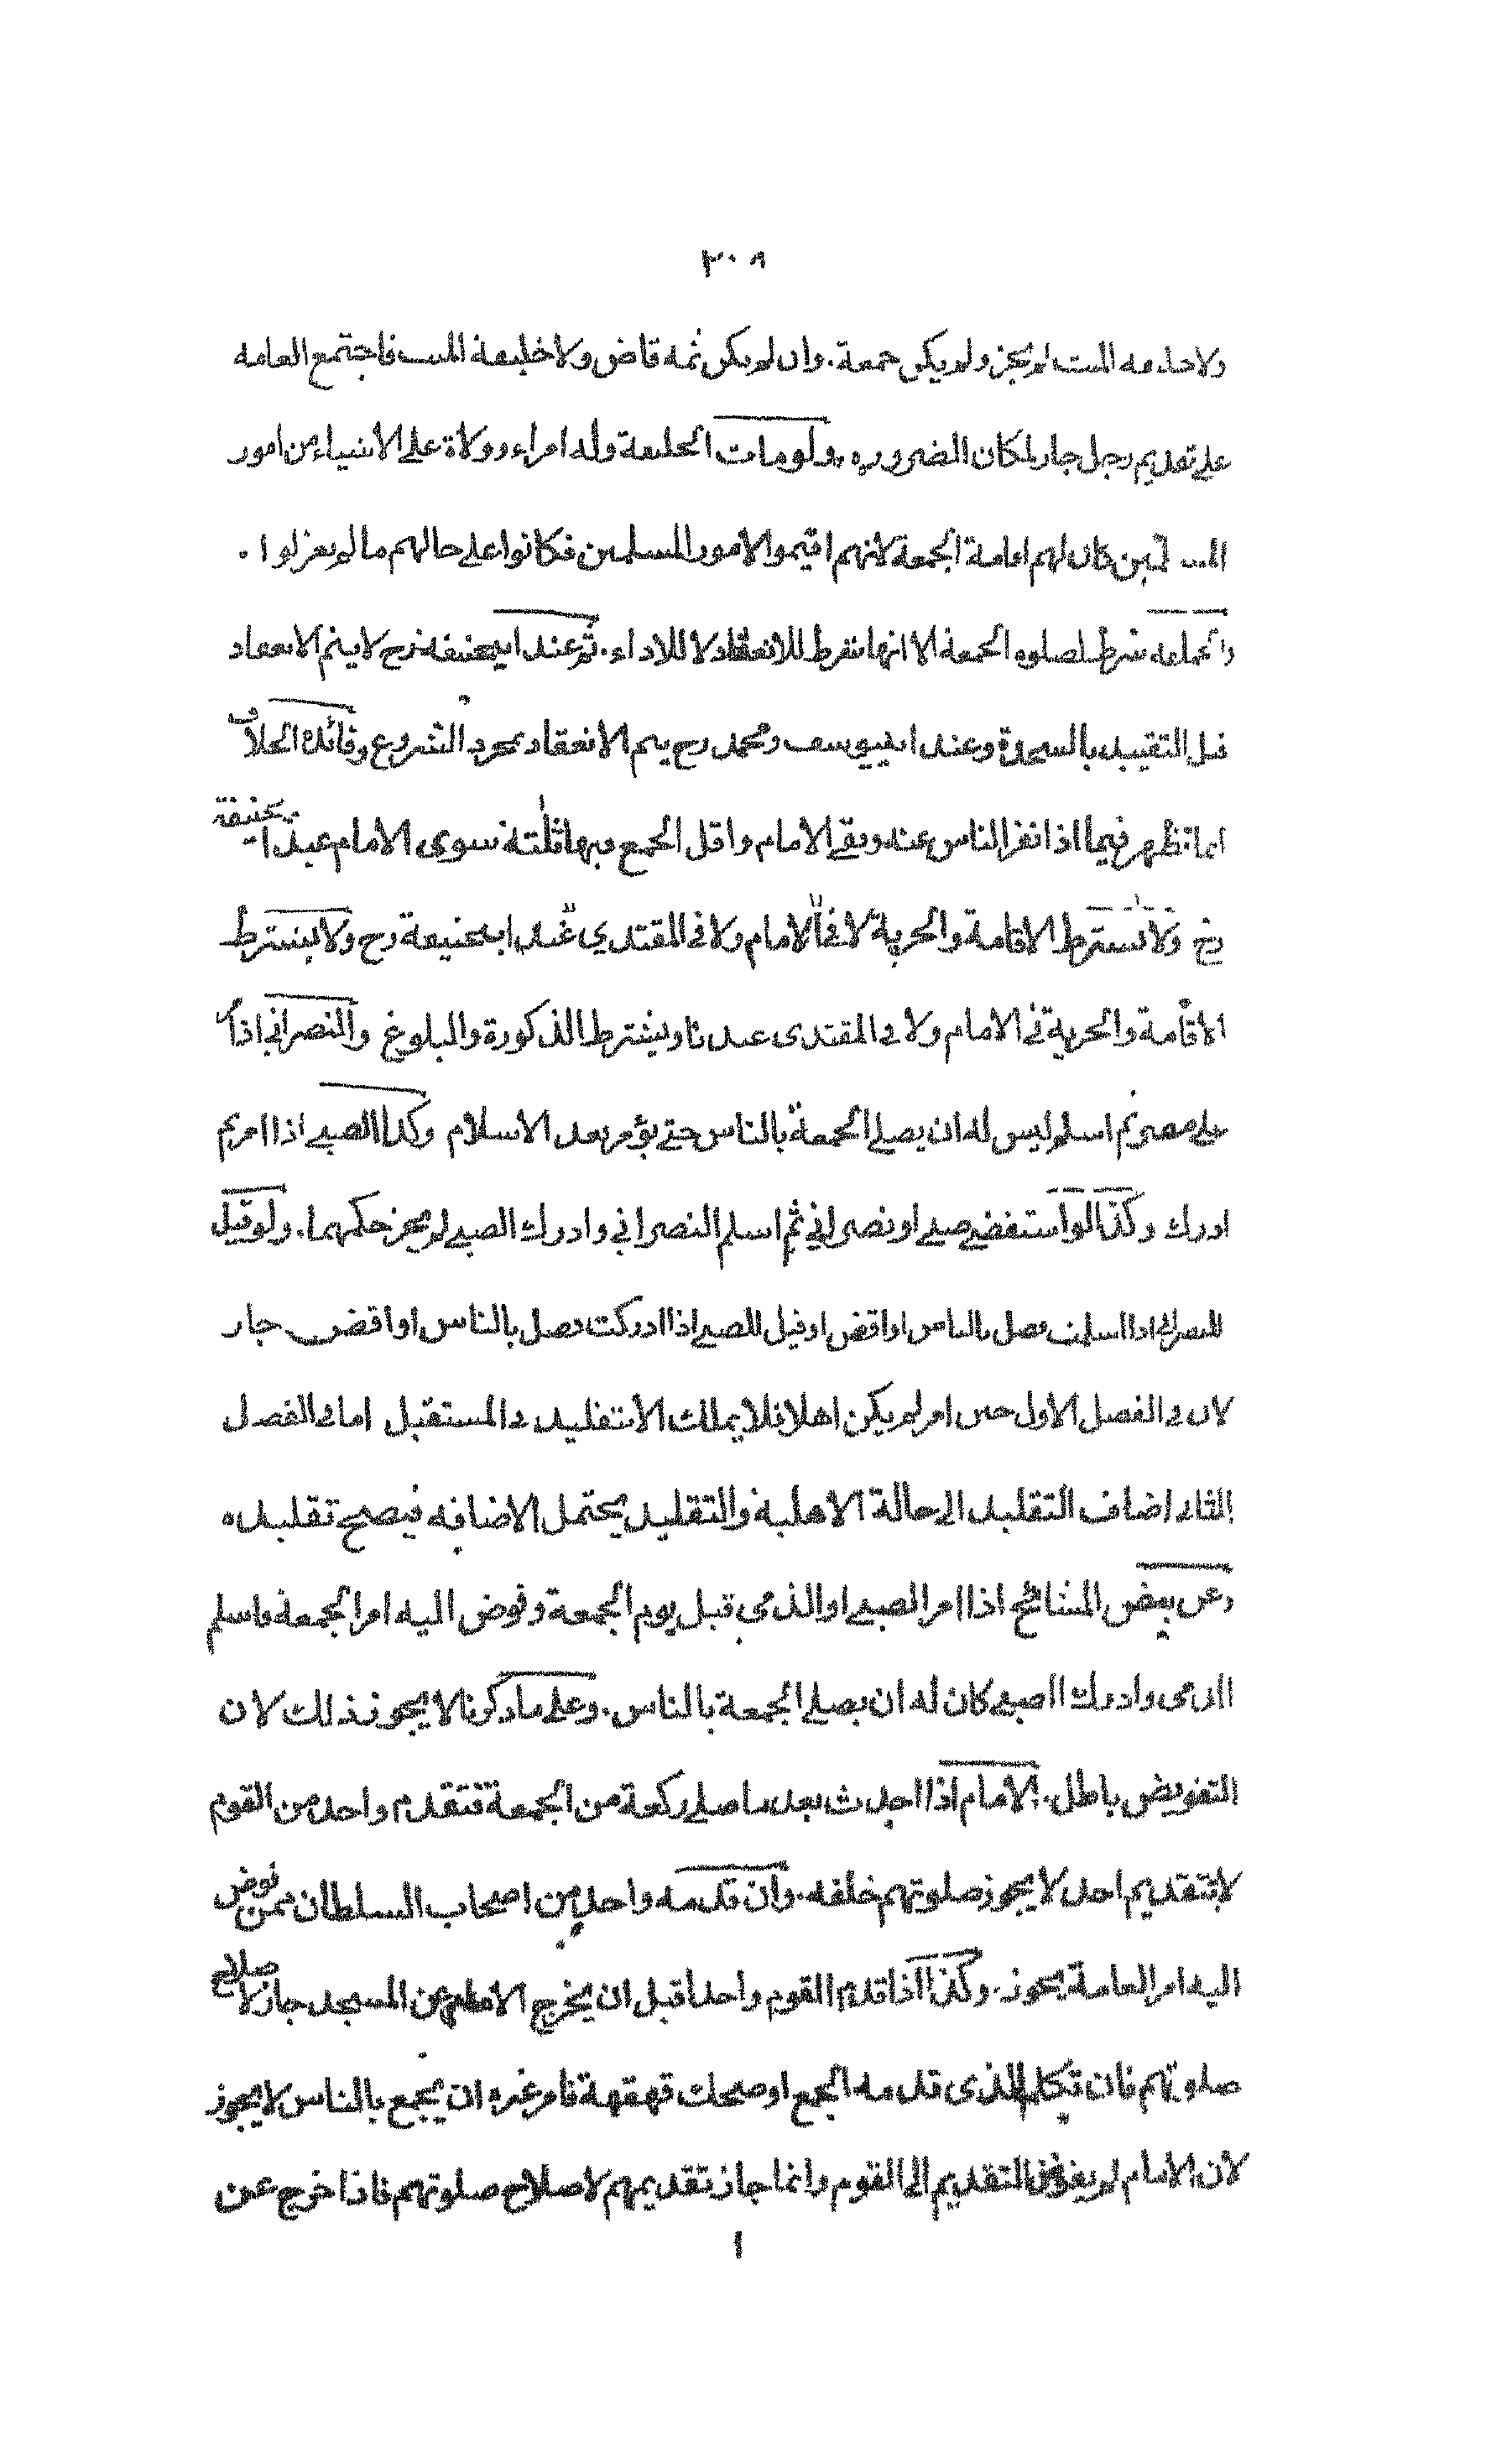 ٢٠٨
ولا خليفة الميت لم يجز ولم يكن جمعة. وان لم يكن ثمه قاض ولا خليفة الميت فاجتمع العامه
على تقديم رجل جاز لمكان الضروره. ولو مات الخليفة وله امراء وولاة على الاشياء من امور
المسلمين كان لهم اقامة الجمعة لانهم اقيموا لامور المسلمين فكانوا على حالهم ما لم يعزلوا.
والجماعه شرط لصلوه الجمعة الا انها شرط للانعقاد لا للاداء. ثم عند ابيحنيفة رح لا يتم الانعقاد
قبل التقييد بالسجدة وعند ابييوسف ومحمد رح يتم الانعقاد بمجرد الشروع وفائدة الخلاف
انما تظهر فيما اذا نفر الناس عنه وبقى الامام واقل الجمع فيها ثلثة سوى الامام عند ابيحنيفة
رح ولا تشترط الاقامة والحرية لا في الامام ولا في المقتدي عند ابيحنيفة رح ولا يشترط
الاقامة والحرية في الامام ولا في المقتدى عندنا ويشترط الذكورة والبلوغ والنصراني اذا
على مصر ثم اسلم ليس له ان يصلى الجمعة بالناس حتى يؤمر بعد الاسلام وكذا الصبى اذا امر ثم
ادرك وكذا لو استقضى صبى او نصراني ثم اسلم النصراني وادرك الصبى لم يجز حكمهما. ولو قيل
للنصرانى اذا اسلمت فصل بالناس او اقض او قيل للصبى اذا ادركت فصل بالناس او اقض جاز
لان في الفصل الاول حين امر لم يكن اهلا فلا يملك الا بتقليد في المستقبل اما في الفصل
الثانى اضاف التقليد الى حالة الاهلية والتقليد يحتمل الاضافه فيصح تقليده
وعن بعض المشائخ اذا امر الصبى او الذمى قبل يوم الجمعة وفوض اليه امر الجمعة فاسلم
الذمى وادرك الصبى كان له ان يصلى الجمعة بالناس. وعلى ما ذكرنا لا يجوز ذلك لان
التفويض باطل. الامام اذا احدث بعد ما صلى ركعة من الجمعة فتقدم واحد من القوم
لا بتقديم احد لا يجوز صلوتهم خلفه. وان قدمه واحد من اصحاب السلطان ممن فوض
اليه امر العامة يجوز. وكذا اذا قدم القوم واحدا قبل ان يخرج الامام من المسجد جاز لاصلاح
صلوتهم فان تكلم الذى قدمه الجمع او ضحك قهقهة فامر غيره ان يجمع بالناس لا يجوز
لان الامام لم يفوض التقديم الى القوم وانما جاز تقديمهم لاصلاح صلوتهم فاذا خرج عن